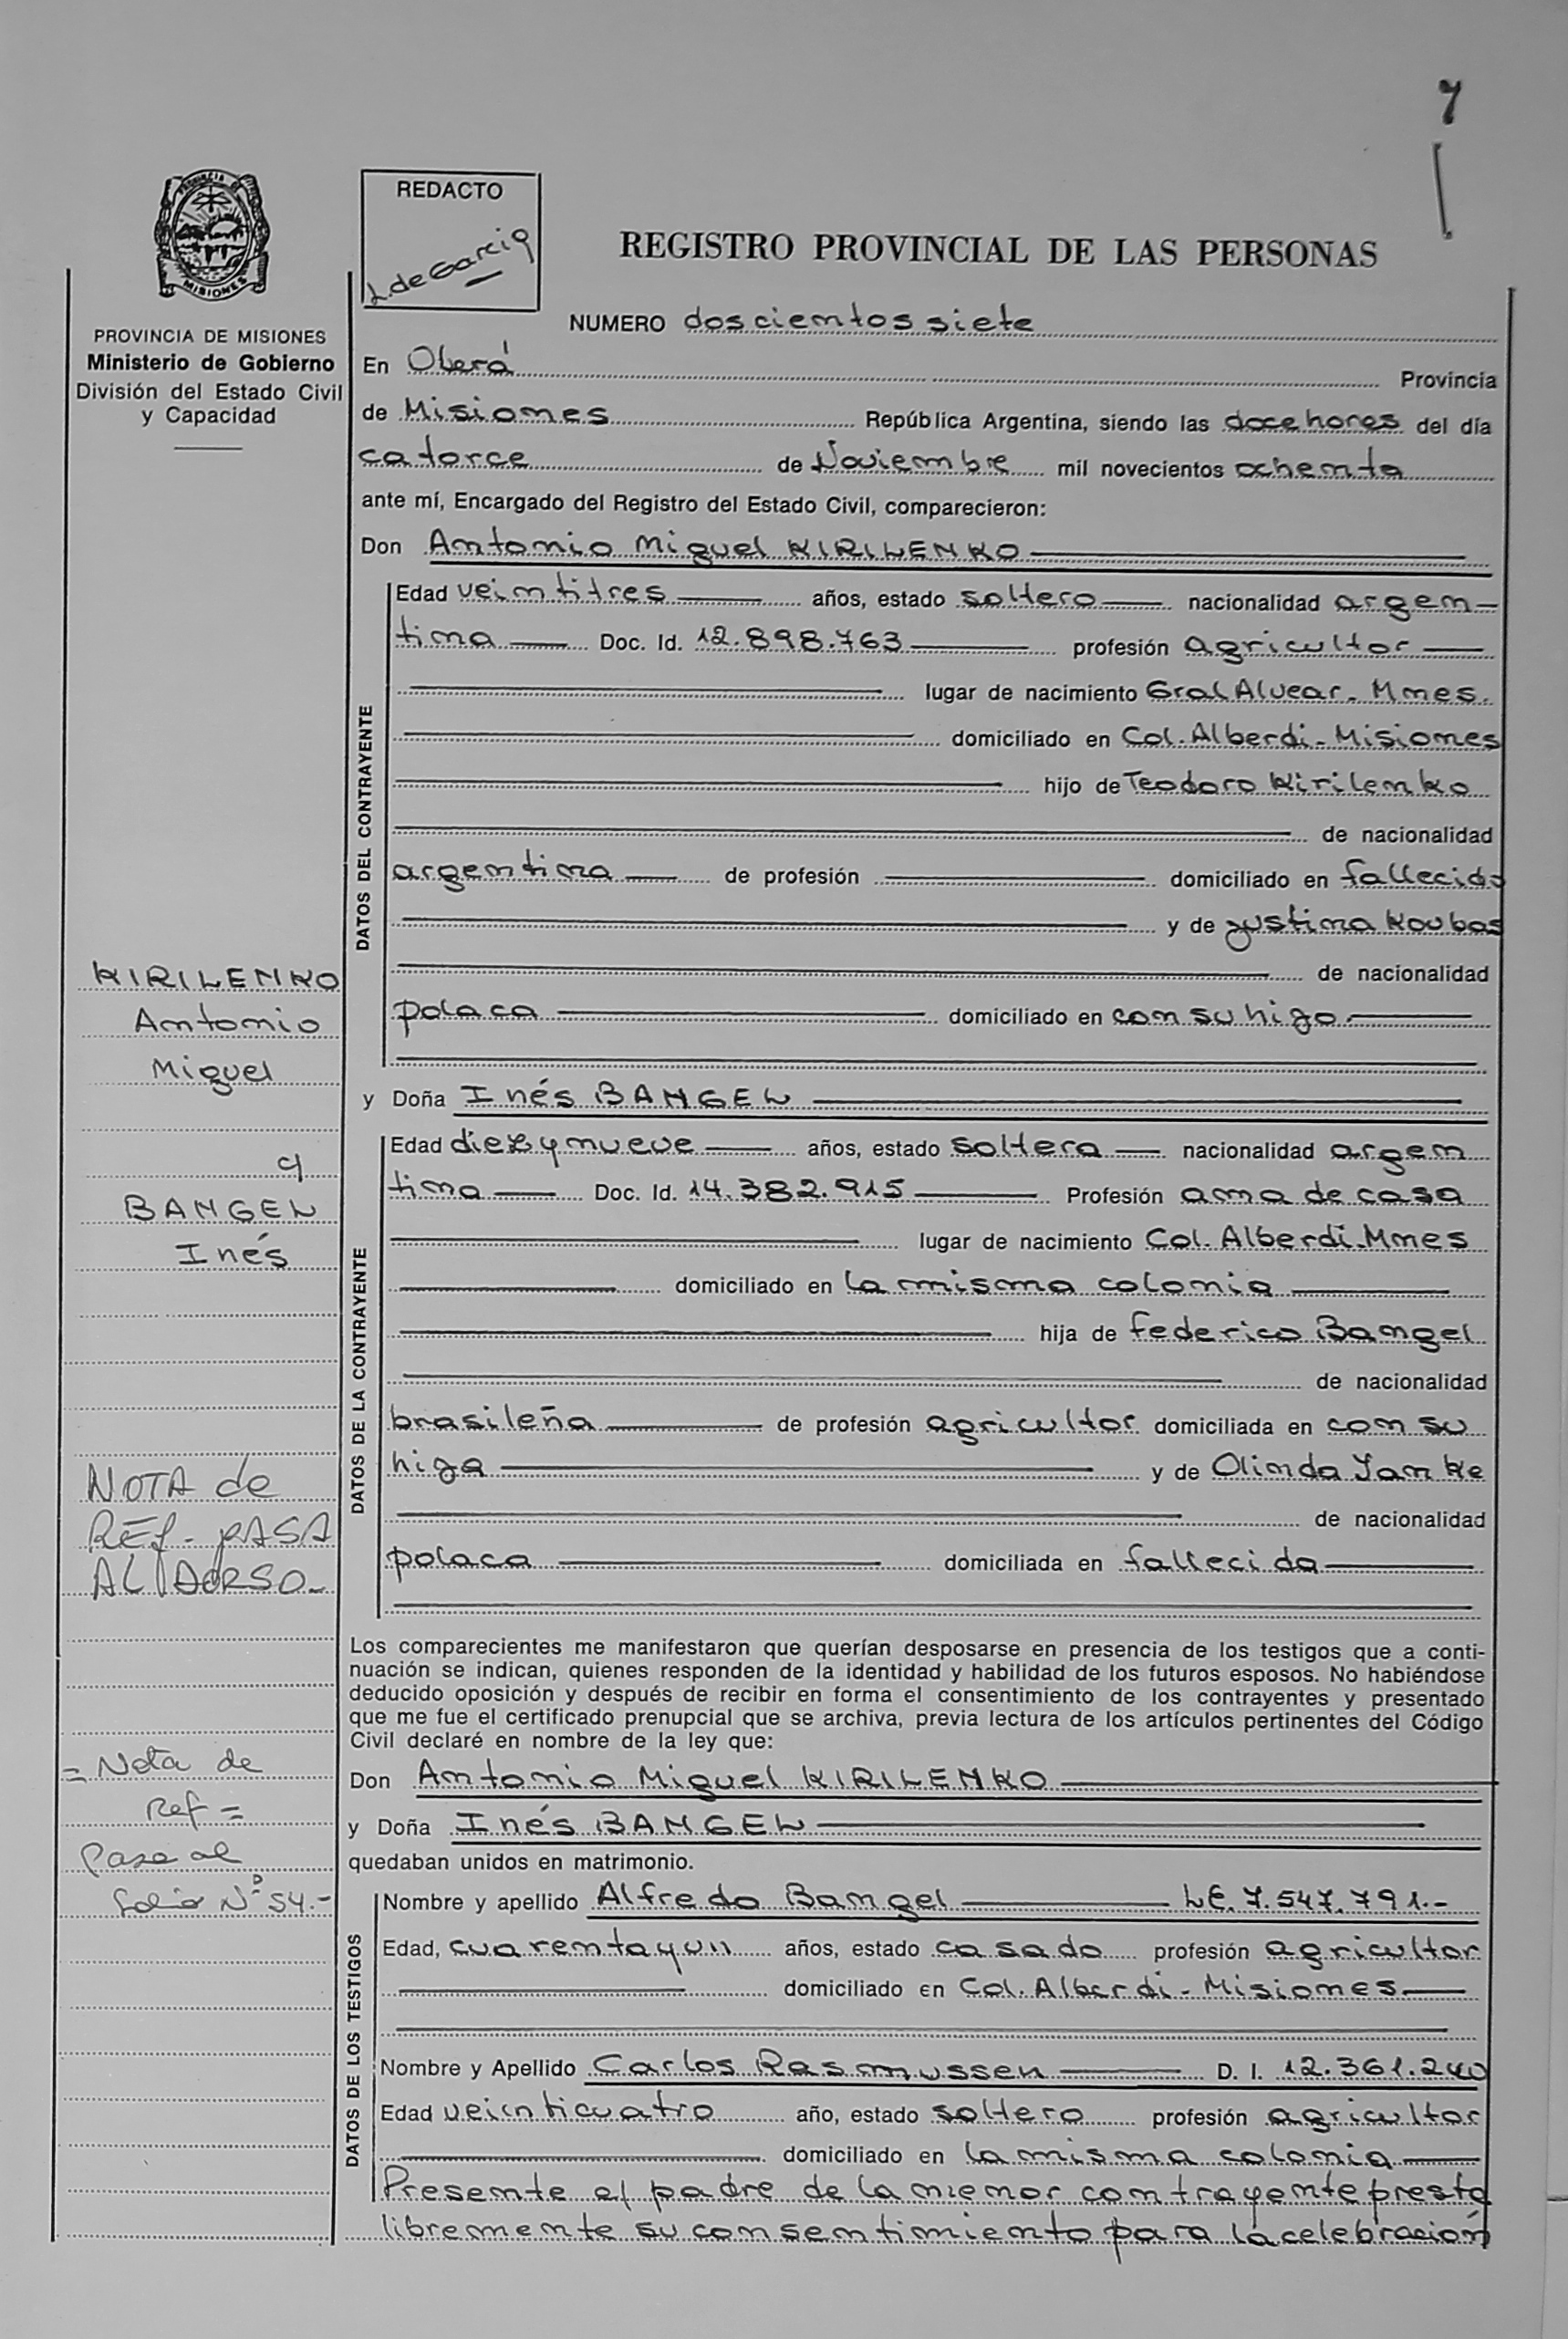 7
REDACTO
L. de Garcia
REGISTRO PROVINCIAL DE LAS PERSONAS
MISIONES
PROVINCIA DE MISIONES
Ministerio de Gobierno
División del Estado Civil
y Capacidad
NUMERO doscientos siete
En Oberá Provincia
de Misiones República Argentina, siendo las doce horas del día
catorce de Noviembre mil novecientos ochenta
ante mí, Encargado del Registro del Estado Civil, comparecieron:
Don Antonio Miguel KIRILENKO
DATOS DEL CONTRAYENTE
Edad veintitres años, estado soltero nacionalidad argen-
tina Doc. Id. 12.898.763 profesión agricultor
lugar de nacimiento Gral Alvear - Mnes.
domiciliado en Col. Alberdi - Misiones
hijo de Teodoro Kirilenko
de nacionalidad
argentina de profesión domiciliado en fallecido
y de Justina Koubas
de nacionalidad
polaca domiciliado en con su higo
KIRILENKO
Antonio
Miguel
c/
BANGEL
Inés
y Doña Inés BANGEL
DATOS DE LA CONTRAYENTE
Edad diez y nueve años, estado soltera nacionalidad argen
tina Doc. Id. 14.382.915 Profesión ama de casa
lugar de nacimiento Col. Alberdi - Mnes
domiciliado en la misma colonia
hija de Federico Bangel
de nacionalidad
brasileña de profesión agricultor domiciliada en con su
higa y de Olinda Yanke
de nacionalidad
polaca domiciliada en fallecida
NOTA de
REF - PASA
AL DORSO -
Los comparecientes me manifestaron que querían desposarse en presencia de los testigos que a conti-
nuación se indican, quienes responden de la identidad y habilidad de los futuros esposos. No habiéndose
deducido oposición y después de recibir en forma el consentimiento de los contrayentes y presentado
que me fue el certificado prenupcial que se archiva, previa lectura de los artículos pertinentes del Código
Civil declaré en nombre de la ley que:
Don Antonio Miguel KIRILENKO
y Doña Inés BANGEL
quedaban unidos en matrimonio.
= Nota de
Ref =
Pase al
folio Nº 54.-
DATOS DE LOS TESTIGOS
Nombre y apellido Alfredo Bangel L.E. 7.547.791.-
Edad, cuarenta y un años, estado casado profesión agricultor
domiciliado en Col. Alberdi - Misiones
Nombre y Apellido Carlos Rasmussen D. I. 12.361.240
Edad veinticuatro año, estado soltero profesión agricultor
domiciliado en la misma colonia
Presente el padre de la menor contrayente presta
libremente su consentimiento para la celebración